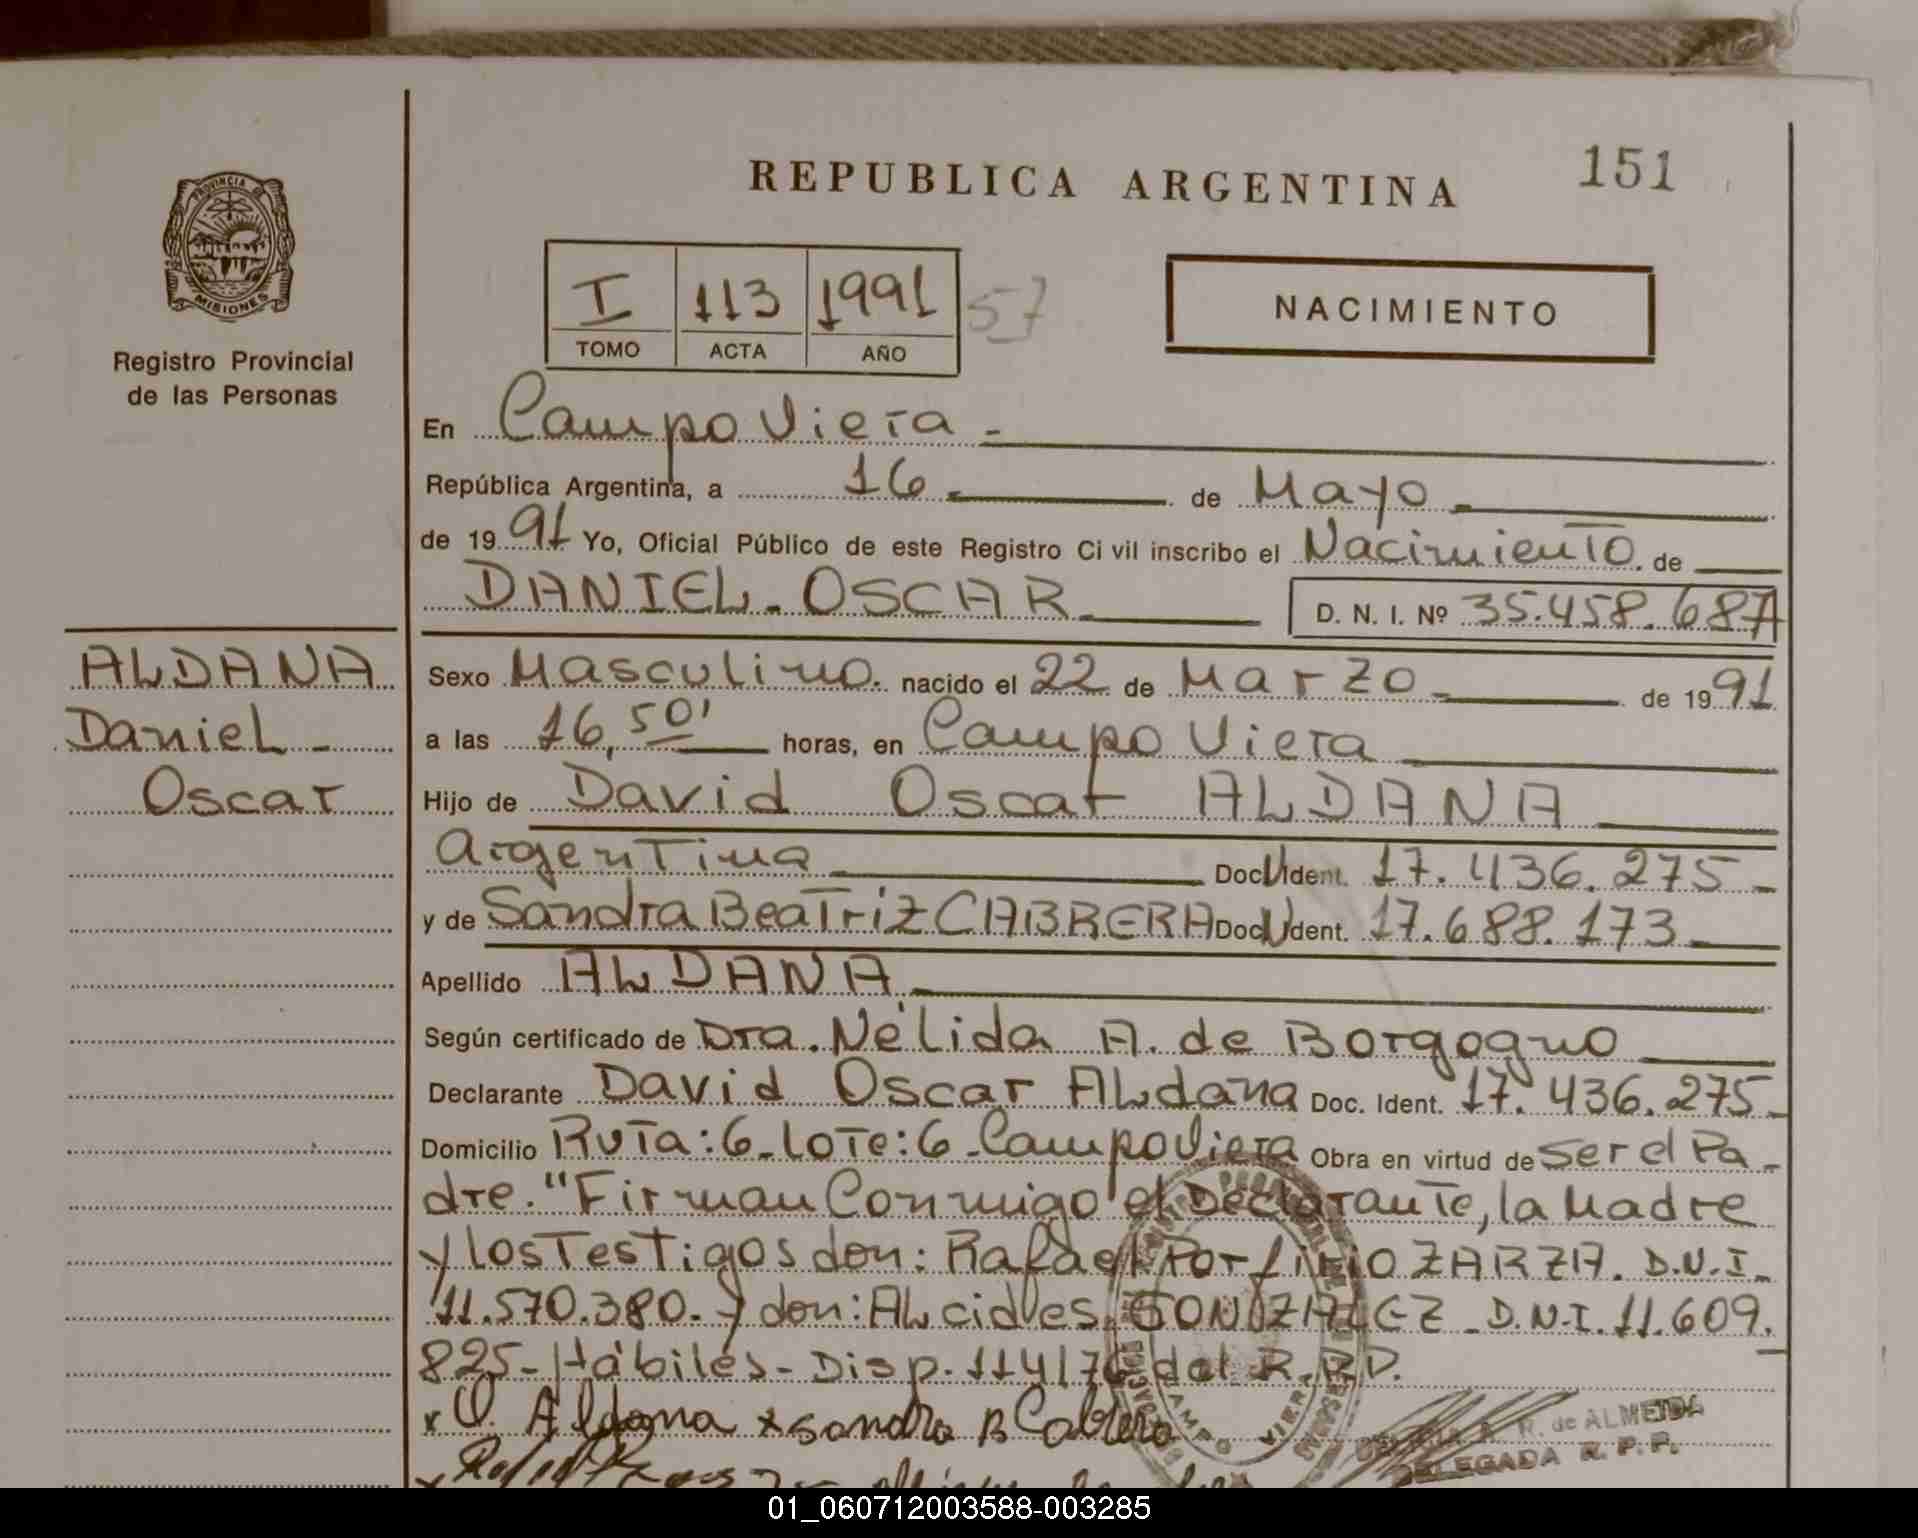 REPUBLICA ARGENTINA
151
PROVINCIA DE
MISIONES
Registro Provincial
de las Personas
I 113 1991 57
TOMO ACTA AÑO
NACIMIENTO
En Campo Viera -
República Argentina, a 16 - de Mayo -
de 1991 Yo, Oficial Público de este Registro Civil inscribo el Nacimiento de
DANIEL - OSCAR
D. N. I. Nº 35.458.687A
ALDANA
Daniel -
Oscar
Sexo Masculino. nacido el 22 de Marzo - de 1991
a las 16,50' horas, en Campo Viera
Hijo de David Oscar ALDANA
Argentina Doc. Ident. 17.436.275 -
y de Sandra Beatriz CABRERA Doc. Ident. 17.688.173
Apellido ALDANA
Según certificado de Dra. Nélida A. de Borgogno
Declarante David Oscar Aldana Doc. Ident. 17.436.275 -
Domicilio Ruta:6-Lote:6-Campo Viera Obra en virtud de Ser el Pa-
dre. "Firman Conmigo el Declarante, la Madre
y los Testigos don: Rafael Porfirio ZARZA. D.N.I.
11.570.380. y don: Alcides GONZALEZ - D.N.I. 11.609.
825- Hábiles - Disp. 114/76 del R.P.P.
x O. Aldana x Sandra B Cabrera
R. de ALMEIDA
DELEGADA R. P. P.
CAMPO VIERA
01_060712003588-003285